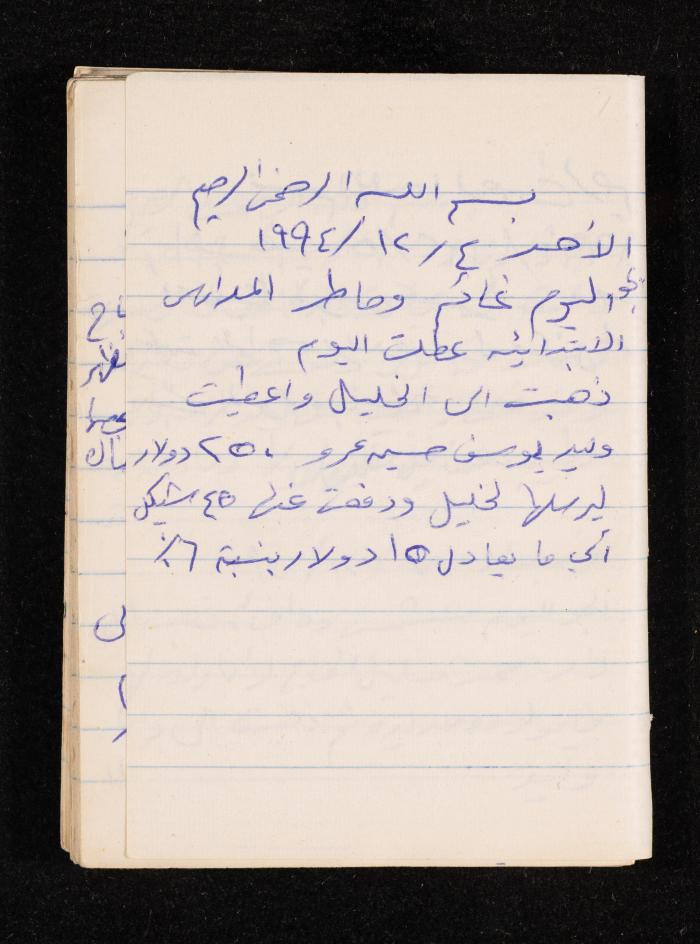 بسم الله الرحمن الرحيم
الأحد ٤/١٢/١٩٩٤
جو اليوم غائم وماطر المدارس
الابتدائيه عطلت اليوم
ذهبت الى الخليل واعطيت
وليد يوسف حسين عمرو ٢٥٠ دولار
ليرسلها لخليل ودفعت عنها ٤٥ شيكل
أي ما يعادل ١٥ دولار بنسبة ٦٪